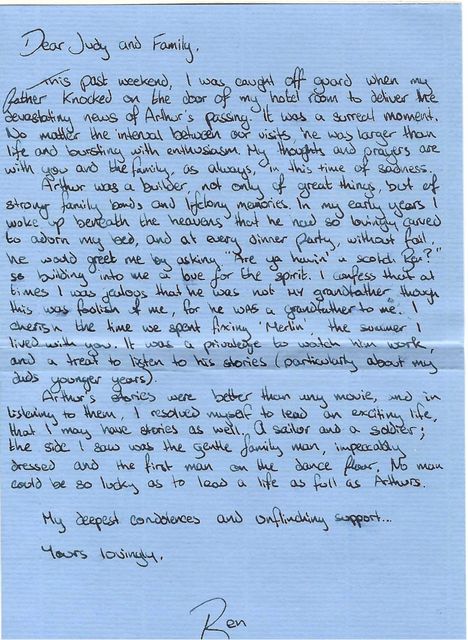 Dear Judy and Family,
This past weekend, I was caught off guard when my
father knocked on the door of my hotel room to deliver the
devastating news of Arthur's passing. It was a surreal moment.
No matter the interval between our visits, he was larger than
life and bursting with enthusiasm. My thoughts and prayers are
with you and the family, as always, in this time of sadness.
Arthur was a builder, not only of great things, but of
strong family bonds and lifelong memories. In my early years I
woke up beneath the heavens that he had so lovingly carved
to adorn my bed, and at every dinner party, without fail,
he would greet me by asking "Are ya havin' a scotch Ren?"
so building into me a love for the spirit. I confess that at
times I was jealous that he was not my grandfather though
this was foolish of me, for he was a grandfather to me. I
cherish the time we spent fixing 'Merlin', the summer I
lived with you. It was a privaledge to watch him work,
and a treat to listen to his stories (particularly about my
dad's younger years).
Arthur's stories were better than any movie, and in
listening to them, I resolved myself to lead an exciting life,
that I may have stories as well. A sailor and a soldier;
the side I saw was the gentle family man, impeccably
dressed and the first man on the dance floor. No man
could be so lucky as to lead a life as full as Arthurs.
My deepest condolences and unflinching support...
Yours lovingly,
Ren